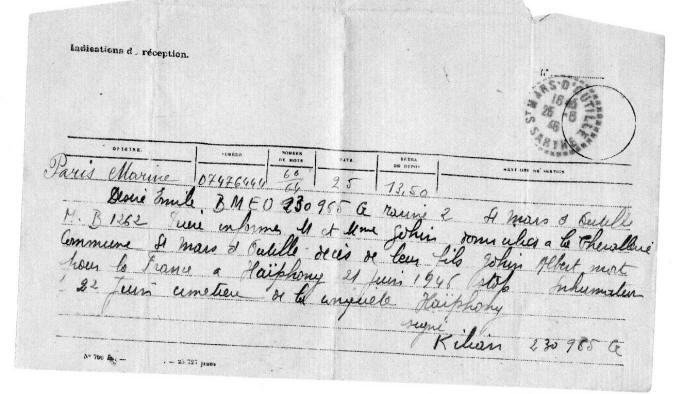 Indications de réception.
N°
ST MARS-D'OUTILLE
16
25 -6
46
SARTHE
ORIGINE. NUMÉRO NOMBRE DE MOTS DATE HEURE DE DÉPÔT MENTIONS DE SERVICE
Paris Marine 07476444 66/64 25 13.50
Emile BMEO 230985 G 2 St Mars d Outille
M.B 1262 Prière informer M et Mme Johin domicilies a la Chevallerie
Commune St Mars d Outille décès de leur fils Johin Albert mort
pour la France a Haïphong 21 juin 1946 stop Inhumation
22 Juin cimetiere de la Haïphong
signé
Kilian 230985 G
N° 700